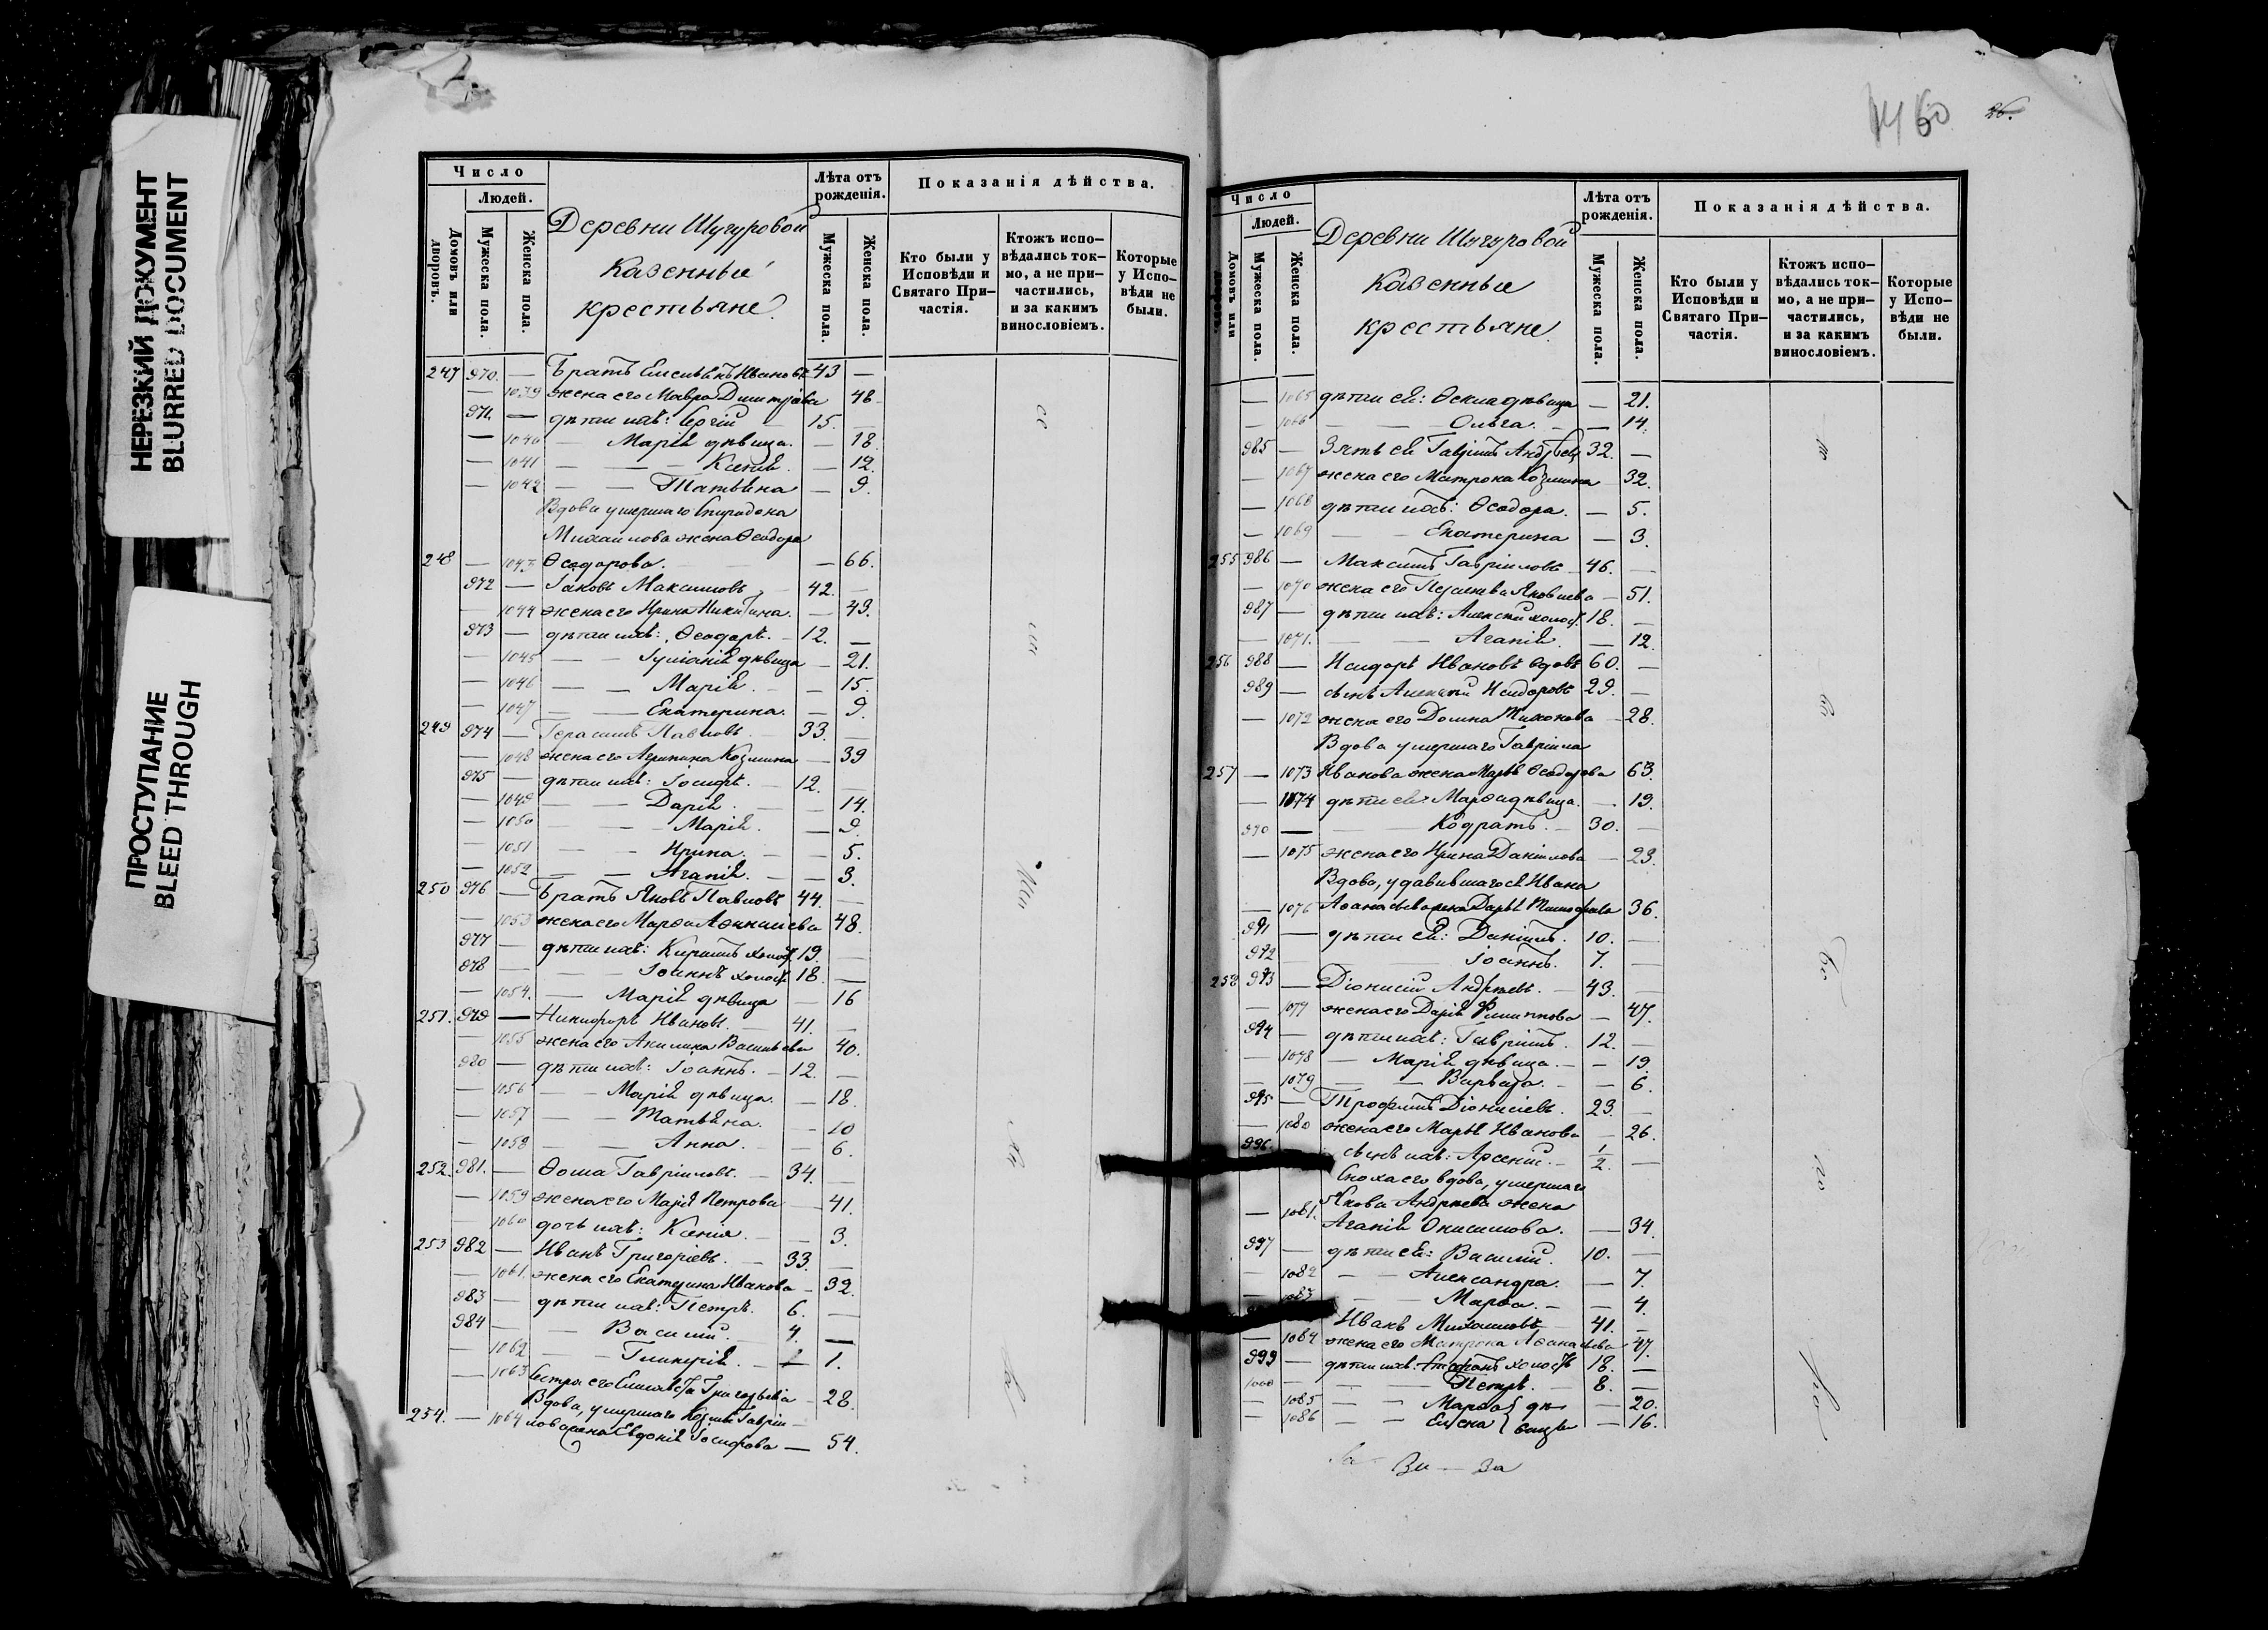 НЕРЕЗКИЙ ДОКУМЕНТ
BLURRED DOCUMENT
ПРОСТУПАНИЕ
BLEED THROUGH
Число
Людей.
Домовъ или дворовъ.
Мужеска пола.
Женска пола.
Деревни Шугуровой
Казенные
крестьяне.
Лѣта отъ рожденія.
Мужеска пола.
Женска пола.
Показанія дѣйства.
Кто были у Исповѣди и Святаго При-частія.
Ктожъ испо-вѣдались ток-мо, а не при-частились, и за какимъ винословіемъ.
Которые у Испо-вѣди не были.
247 970. — Братъ Ивановъ 43 —
— 1039 жена его Мавра Димитріева 48
971. — дѣти ихъ: Сергій 15.
— 1040 — Марія дѣвица. — 18.
— 1041 — — Ксенія. — 12.
— 1042 — — Татьяна — 9.
Вдова умершаго Спиридона
Михайлова жена Ѳеодора
248 — 1043 Ѳеодорова. — 66.
972 — Іаковъ Максимовъ 42. —
— 1044 жена его Ирина Никитина. — 49.
973 — дѣти ихъ: Ѳеодоръ. — 12. —
— 1045 — — Іуліанія дѣвица — 21.
— 1046 — — Марія. — 15.
— 1047 — — Екатерина. — 9.
249 974 — Герасимъ Павловъ 33. —
— 1048 жена его Агрипина Козмина — 39
975 — дѣти ихъ: Іосифъ. — 12. —
— 1049 — — Дарія. — 14.
— 1050 — — Марія. — 9.
— 1051 — — Ирина. — 5.
— 1052 — — Агапія. — 3.
250 976 — Братъ Яковъ Павловъ 44. —
— 1053 жена его Марѳа 48.
977 — дѣти ихъ: Кириллъ холост. 19. —
978 — — Іоаннъ холост. 18. —
— 1054. — Марія дѣвица — 16
251. 979 — Никифоръ Ивановъ. 41. —
— 1055 жена его Акилина Васильева 40.
980 — дѣти ихъ: Іоаннъ. — 12. —
— 1056 — — Марія дѣвица. — 18.
— 1057 — — Татьяна. — 10
— 1058 — — Анна. — 6.
252. 981. — Ѳома Гавріиловъ. — 34. —
— 1059 жена его Марія Петрова — 41.
— 1060 дочь ихъ: Ксенія. — 3.
253 982 — Иванъ Григоріевъ. — 33. —
— 1061. жена его Екатерина Иванова — 32.
983 — дѣти ихъ: Петръ. 6. —
984 — — Василій. 4. —
— 1062 — — Гликерія. — 1.
— 1063 Сестра его Елисавета Григорьева — 28.
Вдова, умершаго Козмы Гавріи-
254. — 1064 лова жена Евдокія Іосифова — 54.
1460 26.
Число
Людей.
Домовъ или дворовъ.
Мужеска пола.
Женска пола.
Деревни Шугуровой
Казенные
крестьяне.
Лѣта отъ рожденія.
Мужеска пола.
Женска пола.
Показанія дѣйства.
Кто были у Исповѣди и Святаго При-частія.
Ктожъ испо-вѣдались ток-мо, а не при-частились, и за какимъ винословіемъ.
Которые у Испо-вѣди не были.
— 1065 дѣти ея: Ѳекла дѣвица — 21.
— 1066 — — Ольга. — 14.
985 — Зять ея Гавріилъ Андреевъ 32. —
— 1067 жена его Матрона Козмина — 32.
— 1068 дѣти ихъ: Ѳеодора. — 5.
— 1069 — — Екатерина — 3.
255 986 — Максимъ Гавріиловъ 46. —
— 1070 жена его Пелагея Яковлева — 51.
987 — дѣти ихъ: Алексій холост. 18. —
— 1071. — — Агапія. — 12.
256 988 — Исидоръ Ивановъ вдовъ 60. —
989 — сынъ Алексѣй Исидоровъ 29. —
— 1072 жена его Домна Тихонова — 28.
Вдова умершаго Гавріила
257 — 1073 Иванова жена Марья Ѳеодорова 63.
— 1074 дѣти ея: Марѳа дѣвица. — 19.
990 — — Кодратъ. — 30. —
— 1075 жена его Ирина Даніилова — 23.
Вдова, удавившагося Ивана
— 1076 Аѳанасьева жена Дарья Тимофеева 36.
991 — дѣти ея: Даніилъ. 10. —
992 — — Іоаннъ. 7. —
258 993 — Діонисій Андреевъ. — 43. —
— 1077 жена его Дарія Филиппова — 47.
994 — дѣти ихъ: Гавріилъ. 12. —
— 1078 — Марія дѣвица. — 19.
— 1079 — — Варвара. — 6.
995 — Трофимъ Діонисіевъ. 23. —
— 1080 жена его Марья Иванова — 26.
996. сынъ ихъ: Арсеній. — 1/2. —
Сноха его вдова, умершаго
Якова Андреева жена
— 1081. Агапія Онисимова. — 34.
997 — дѣти ея: Василій. 10. —
— 1082 — — Александра. — 7.
— 1083 — — Марѳа. — 4.
Иванъ Михайловъ 41. —
— 1084 жена его Матрена Аѳанасьева 47.
999 — дѣти ихъ: Стефанъ холостъ 18. —
1000 — — Петръ. — 8. —
— 1085 — — Марѳа } дѣ- — 20.
— 1086 — — Елена } вицы — 16.